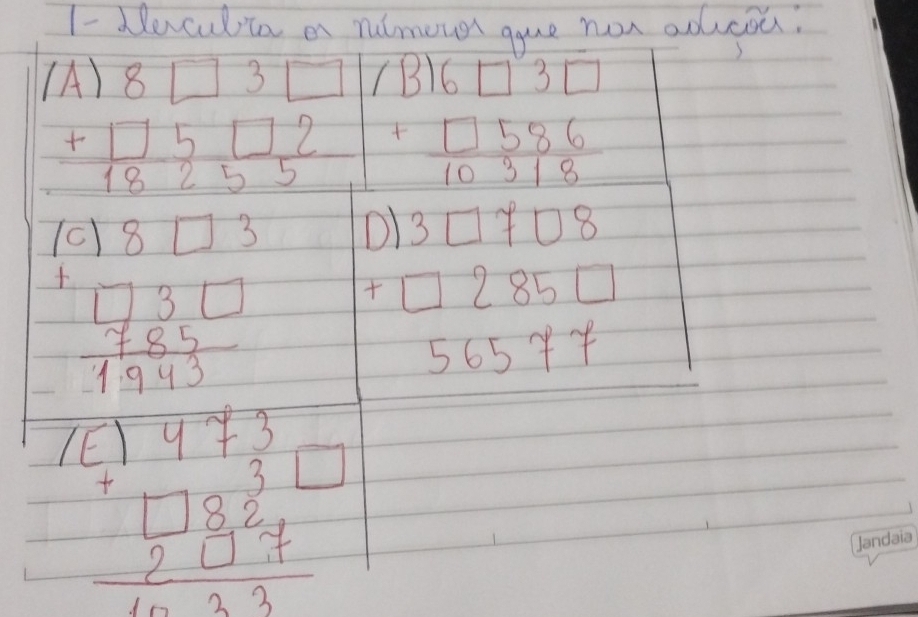 1- Descubra os números que nas adições:
(A) 8 □ 3 □
+ □ 5 □ 2
18 2 5 5
(B) 6 □ 3 □
+ □ 5 8 6
10 3 1 8
(C) 8 □ 3
+
□ 3 □
7 8 5
1 9 4 3
D) 3 □ 7 □ 8
+ □ 2 8 5 □
5 6 5 7 7
(E) 4 7 3
+ 3 □
□ 8 2
2 □ 7
10 3 3
Jandaia